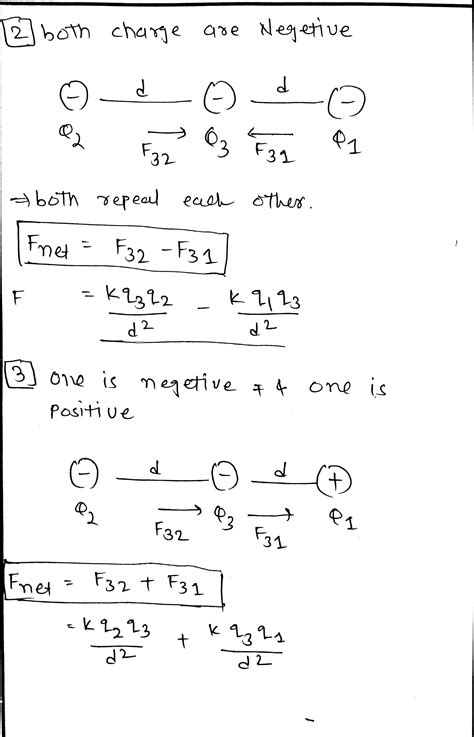 2 both charge are Negetive
(-) d (-) d (-)
Q2 F32 Q3 F31 Q1
⇒ both repeal each other.
Fnet = F32 - F31
F = kq3q2/d² - kq1q3/d²
3 one is negetive & one is
Positive
(-) d (-) d (+)
Q2 F32 Q3 F31 Q1
Fnet = F32 + F31
= kq2q3/d² + kq3q1/d²